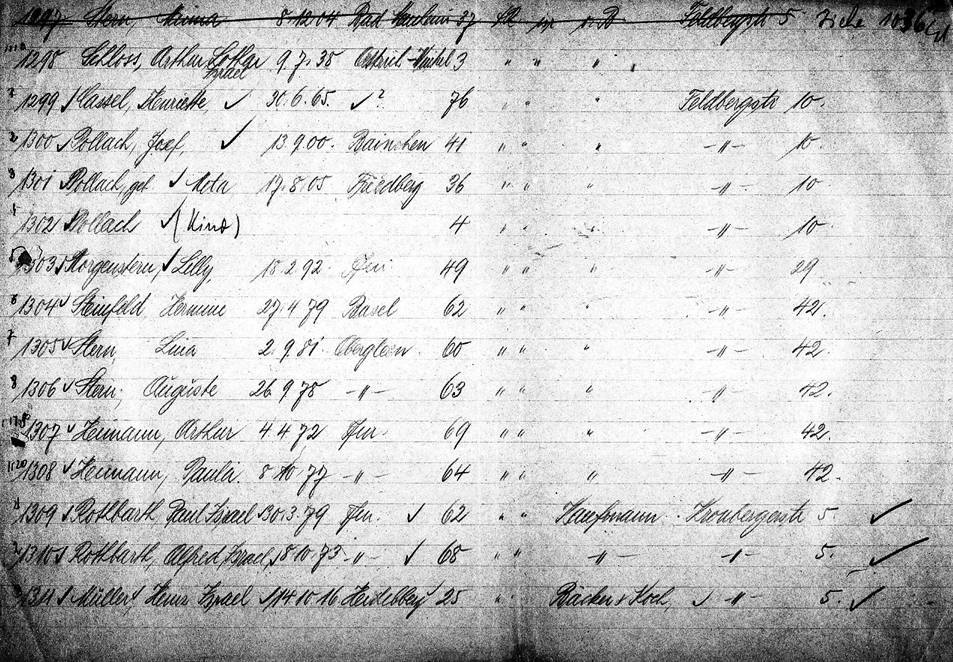 1297 Stern, Minna 8.12.04 Bad Nauheim 37 Feldbergstr 5 Siehe 1036
1298 Schloss, Arthur Lothar 9.7.38 3 " " "
Israel
1299 Cassel, Henriette, ✓ 30.6.65. ✓? 76 " " " Feldbergstr 10.
1300 Pollach, Josef, ✓ 13.9.00. 41 " " " -"- 10.
1301 Pollach, geb. 17.8.05 Friedberg 36 " " " -"- 10
1302 Pollach ✓ (Kind) 4 " " " -"- 10.
1303 Morgenstern, Lilly, 18.2.92. Ffm. 49 " " " -"- 29
1304 Steinfeld, Hermine 27.4.79 62 " " " -"- 42.
1305 Stern, Lina 2.9.81. 60 " " " -"- 42.
1306 Stern, Auguste 26.9.78 -"- 63 " " " -"- 42.
1307 Heimann, Arthur 4.4.72 Ffm. 69 " " " -"- 42.
1308 Heimann, Paula. 8.10.77 -"- 64 " " " -"- 42.
1309 Rothbarth, Paul Israel 30.3.79 Ffm. ✓ 62 " " Kaufmann Kronbergerstr 5. ✓
1310 Rothbarth, Alfred Israel, 18.10.73 -"- ✓ 68 " " -"- -"- 5. ✓
1311 Müller, Heinz Israel 14.10.16 Heidelberg 25 " Bäcker & Koch, ✓ -"- 5. ✓